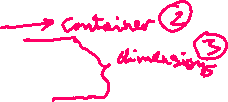 → container ②
dimensions ③